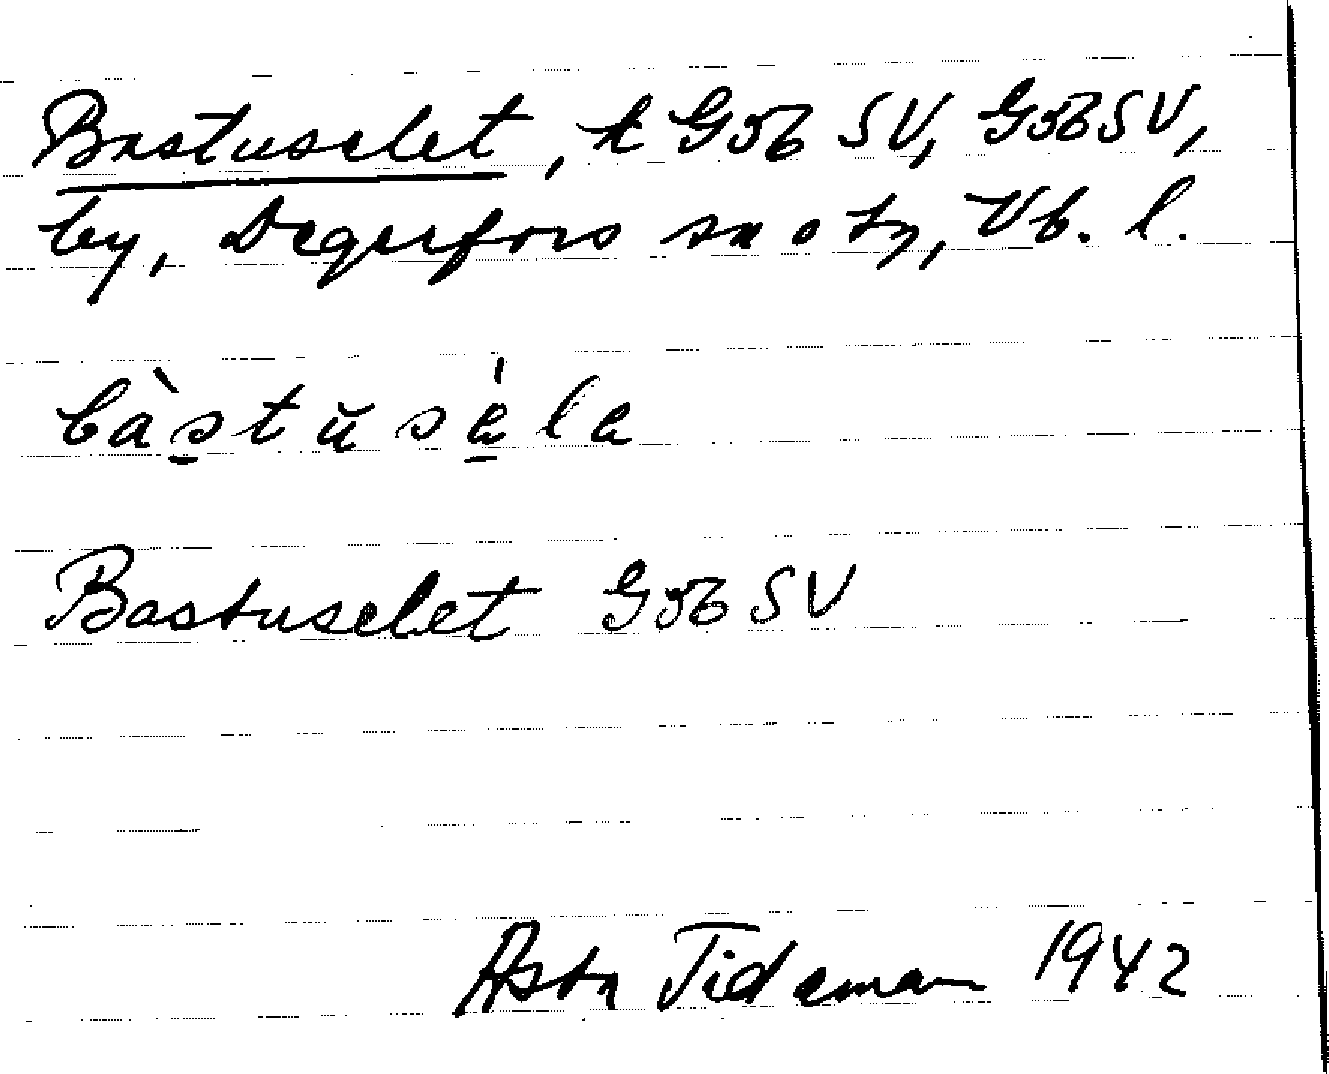 Bastuselet, k G56 SV, G56SV,
by, Degerfors sn o tg, Vb. l.
bàstŭsèla
Bastuselet G56 SV
Asta Tideman 1942